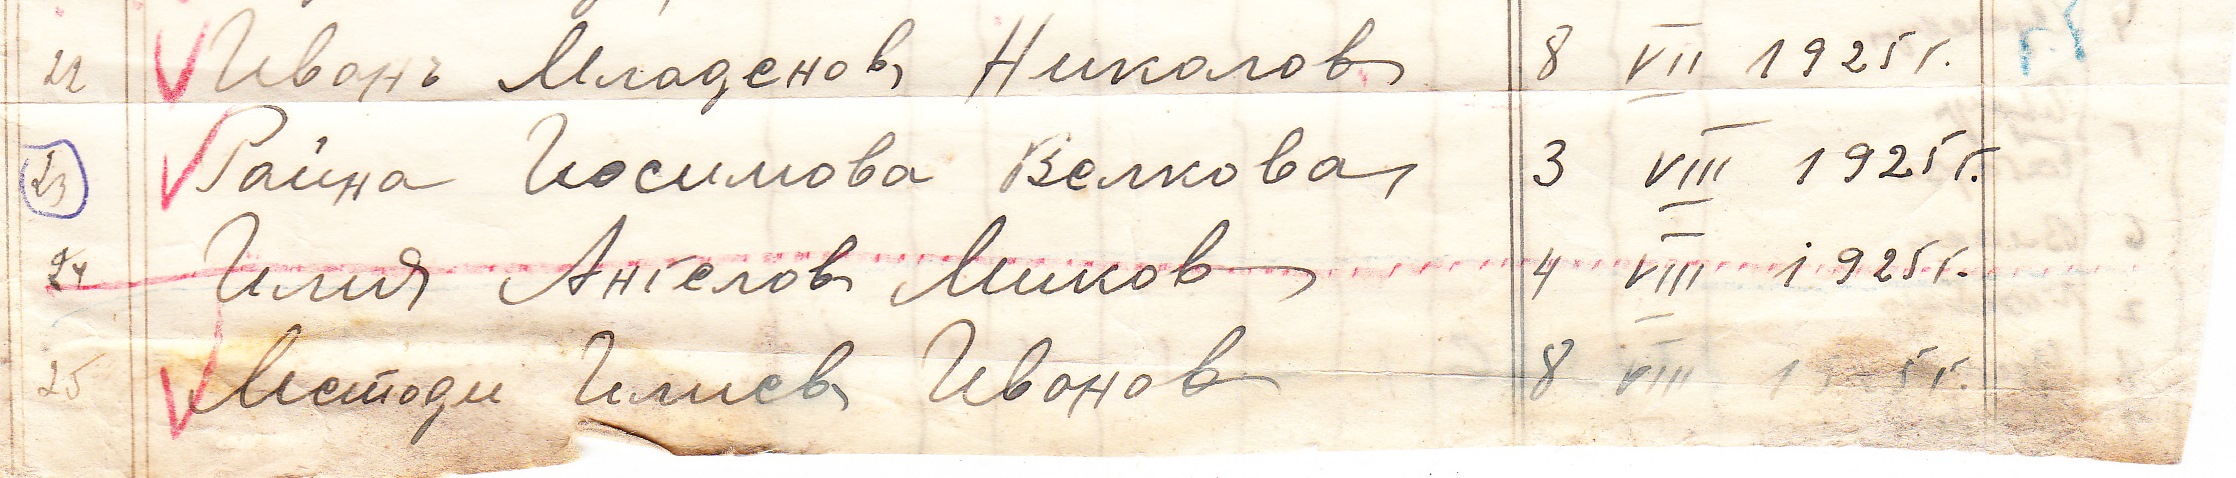 22 Иванъ Младенов Николов 8 VII 1925 г.
23 Райна Иосимова Велкова 3 VIII 1925 г.
24 Илия Ангелов Миков 4 VIII 1925 г.
25 Методи Илиев Иванов 8 VIII г.